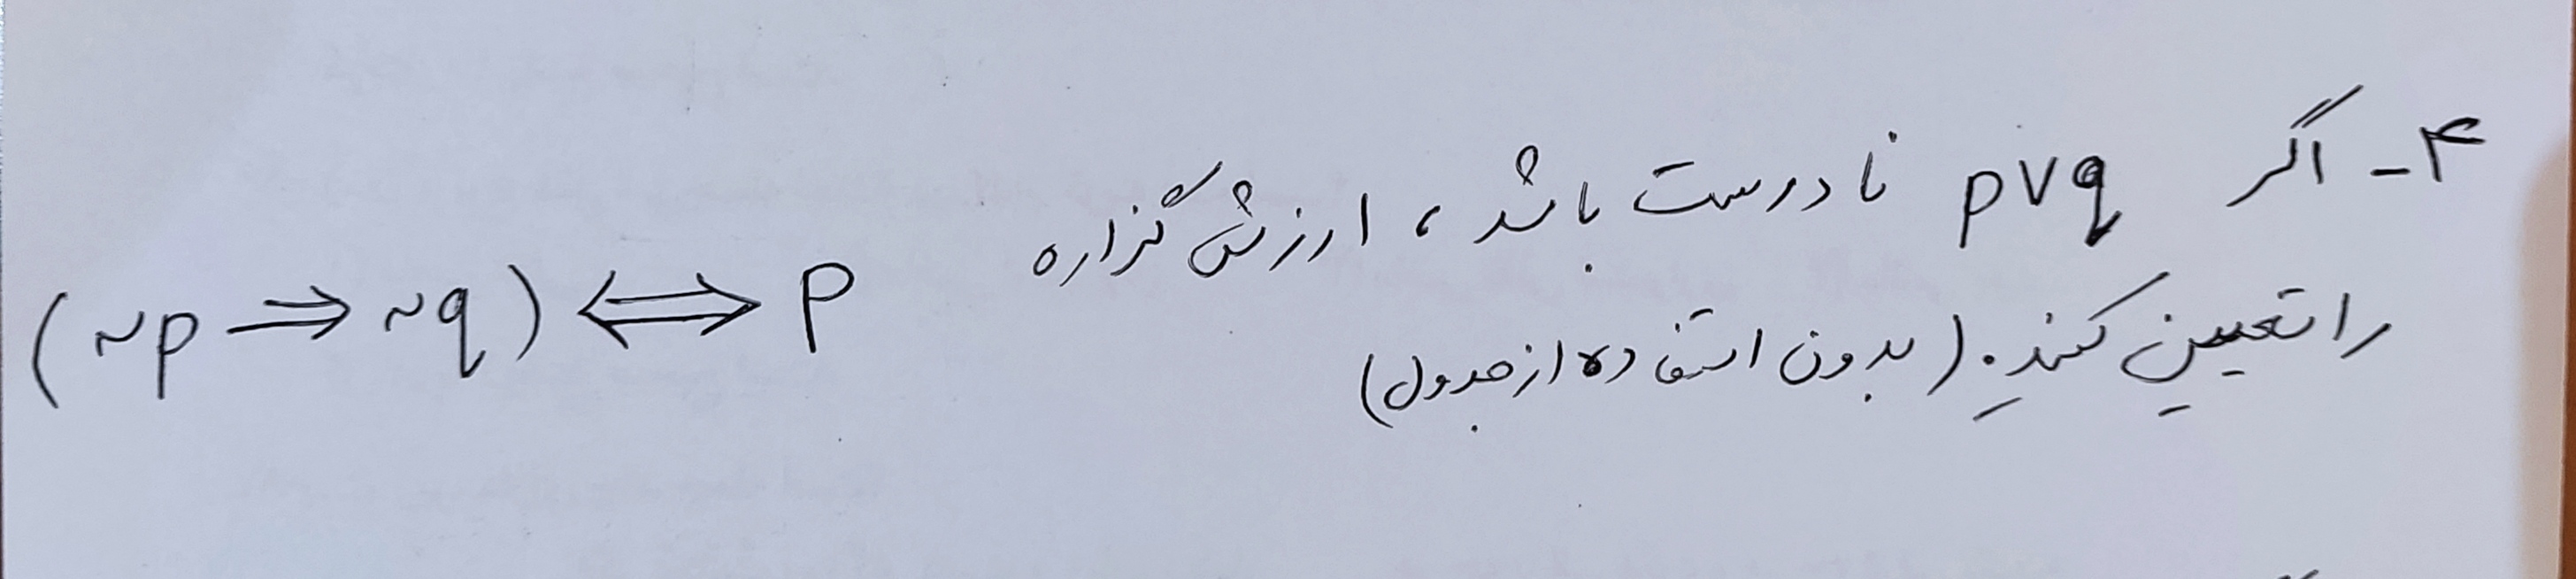 ۴- اگر p∨q نادرست باشد، ارزش گزاره (~p ⇒ ~q) ⇔ p
را تعیین کنید. (بدون استفاده از جدول)